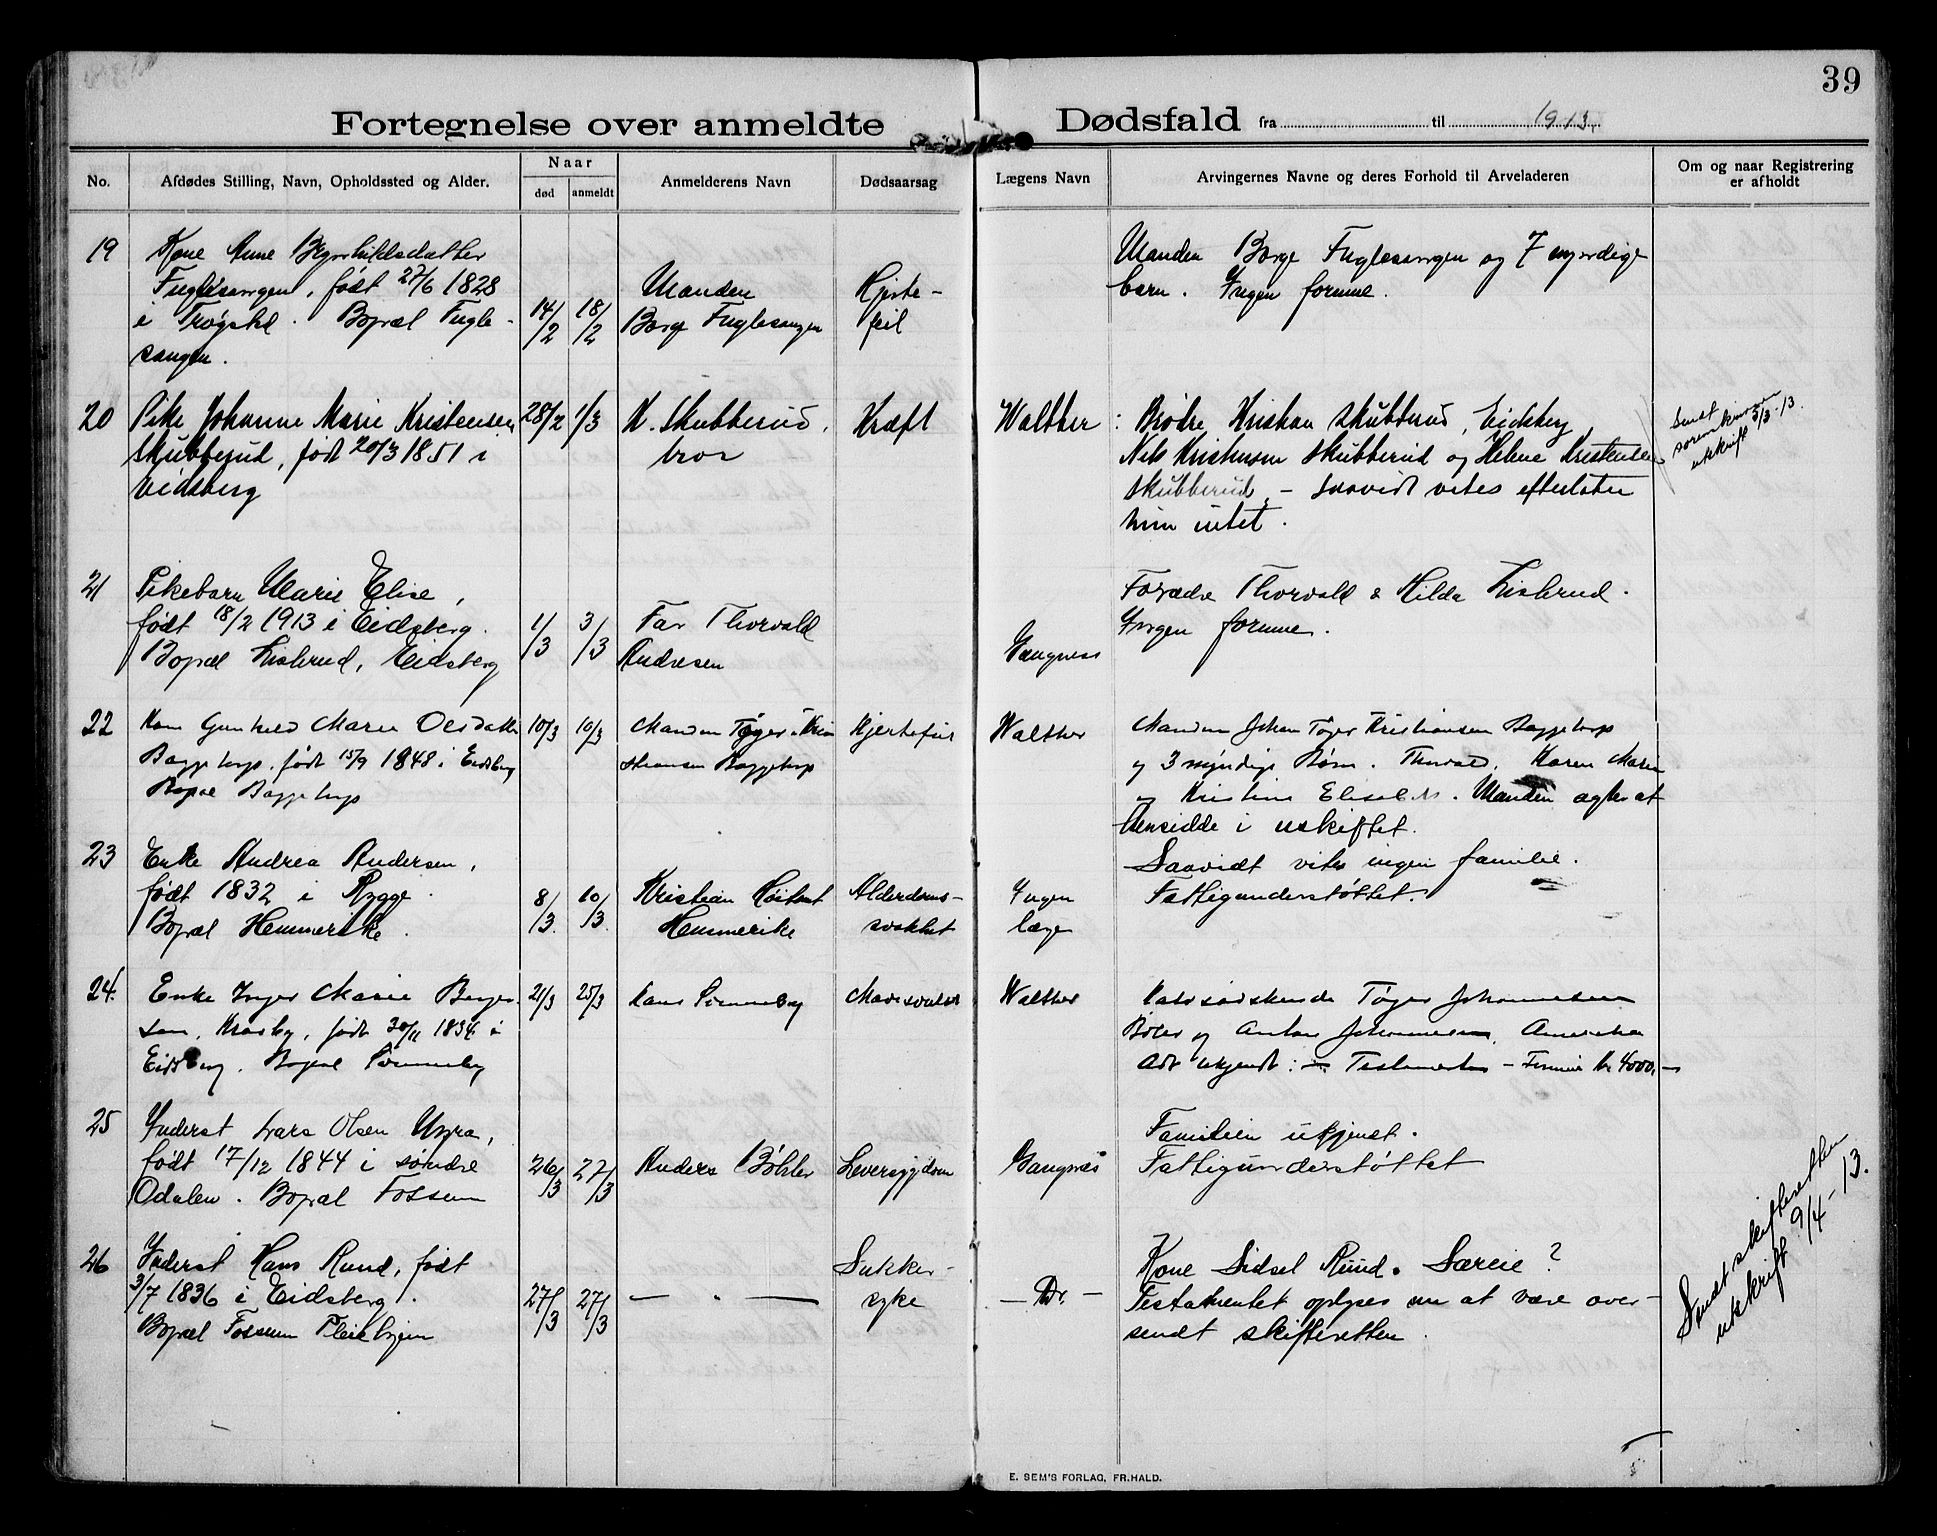 39
Fortegnelse over anmeldte Dødsfald fra til 1913.
No.
Afdødes Stilling, Navn, Opholdssted og Alder.
Naar
død
anmeldt
Anmelderens Navn
Dødsaarsag
Lægens Navn
Arvingernes Navne og deres Forhold til Arveladeren
Om og naar Registrering
er afholdt
19
Kone Anne
Fuglesangen, født 27/6 1828
i Trøgstad. Bopæl Fugle-
sangen.
14/2
18/2
Manden
Borge Fuglesangen
Hjerte-
feil
Manden Borge Fuglesangen og 7 myndige
barn. Ingen formue.
20
Pike Johanne Marie Kristensen
Skubberud, født 20/3 1851 i
Eidsberg
28/2
1/3
K. Skubberud,
bror
Kræft
Walther
Brødre Kristian Skubberud, Eidsberg,
Nels Kristensen Skubberud og Helene Kristensen
Skubberud, – Saavidt vites efterlater
hun intet.
Sendt
sorenskriveren
utskrift 5/3-13.
21
Pikebarn Marie Elise,
født 18/2 1913 i Eidsberg.
Bopæl Lislerud, Eidsberg
1/3
3/3
Far Thorvald
Andresen
Gangnæs
Forældre Thorvald & Hilda Lislerud.
Ingen formue.
22
Kone Gunhild Marie Olsdatter
Baggetorp, født 15/9 1848 i Eidsberg
Bopæl Baggetorp
10/3
10/3
Manden Tøger Kris
tiansen Baggetorp
Hjertefeil
Walther
Manden Johan Tøger Kristiansen Baggetorp
og 3 myndige Børn. Thorvald, Karen Marie
og Kristine Elisabeth. Manden agter at
hensidde i uskiftet.
23
Enke Andrea Andersen,
født 1832 i Rygge.
Bopæl Hemmerike.
8/3.
10/3.
Kristian
Hemmerike
Alderdoms-
svakhet
Ingen
læge
Saavidt vites ingen familie.
Fattigunderstøttet.
24.
Enke Inger Marie Berger
sen, Kraaby, født 30/11 1834 i
Eidsberg. Bopæl
21/3
25/3
Hans
Walther
Halvsødskende Tøger Johannesen
og Anton Johannesen, Amerika
Adr ukjendt: – Testamente – Formue kr 4000,–
25
Inderst Lars Olsen
født 17/12 1844 i søndre
Odalen. Bopæl Fossum
26/3
27/3
Anders Bøhler
Leversygdom
Gangnæs
Familien ukjendt.
Fattigunderstøttet
26
Inderst Hans Ruud, født
3/7 1836 i Eidsberg.
Bopæl Fossum Pleiehjem
27/3
27/3
— " —
Sukker-
syke
— Do. —
Kone Sidsel Ruud. Særeie?
Testamentet oplyses nu at være over-
sendt skifteretten.
Sendt skifteretten
utskrift 9/4-13.
E. SEM'S FORLAG, FR.HALD.